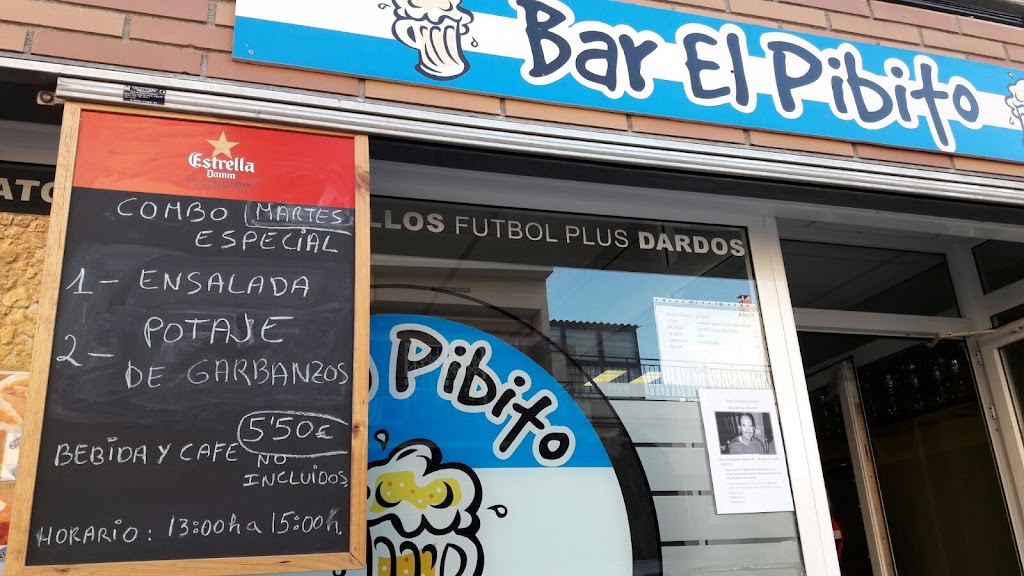 Bar El Pibito
Estrella
Damm
COMBO MARTES
ESPECIAL
1 - ENSALADA
2 - POTAJE
DE GARBANZOS
5'50€
BEBIDA Y CAFÉ NO
INCLUIDOS
HORARIO: 13:00h a 15:00h.
LLOS FUTBOL PLUS DARDOS
Pibito